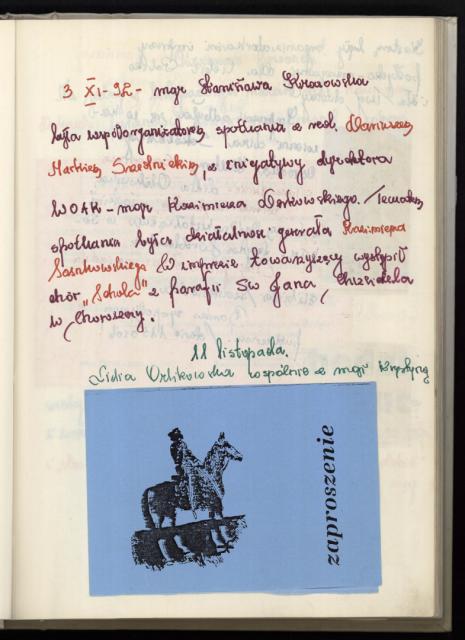 3 XI - 92 - mgr Stanisława Kozłowska
była współorganizatorem spotkania z red. Dariuszem
Markiem Srzednickim, z inicjatywy dyrektora
WOAK - mgr Kazimierza Derkowskiego. Tematem
spotkania była działalność generała Kazimierza
Sosnkowskiego W imprezie towarzyszącej wystąpił
chór "Schola" z parafii Św Jana Chrzciciela
w Choroszczy.
11 listopada.
Lidia Orlikowska wspólnie z mgr Krystyną
zaproszenie